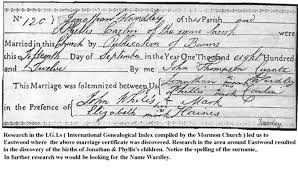 No 1201 Jonathan Wardley of this Parish
and Phyllis of the same Parish were
Married in this Church by Publication of Banns
this Fifteenth Day of September in the Year One Thousand eight Hundred
and Twelve By me John Thompson Curate
This Marriage was solemnized between Us
Jonathan Wardley
Phillis
In the Presence of John White Mark
Elizabeth mark Haines
Research in the I.G.I.s ( International Genealogical Index compiled by the Mormon Church ) led us to
Eastwood where the above marriage certificate was discovered. Research in the area around Eastwood resulted
in the discovery of the births of Jonathan & Phylis's children. Notice the spelling of the surname,.
In further research we would be looking for the Name Wardley.